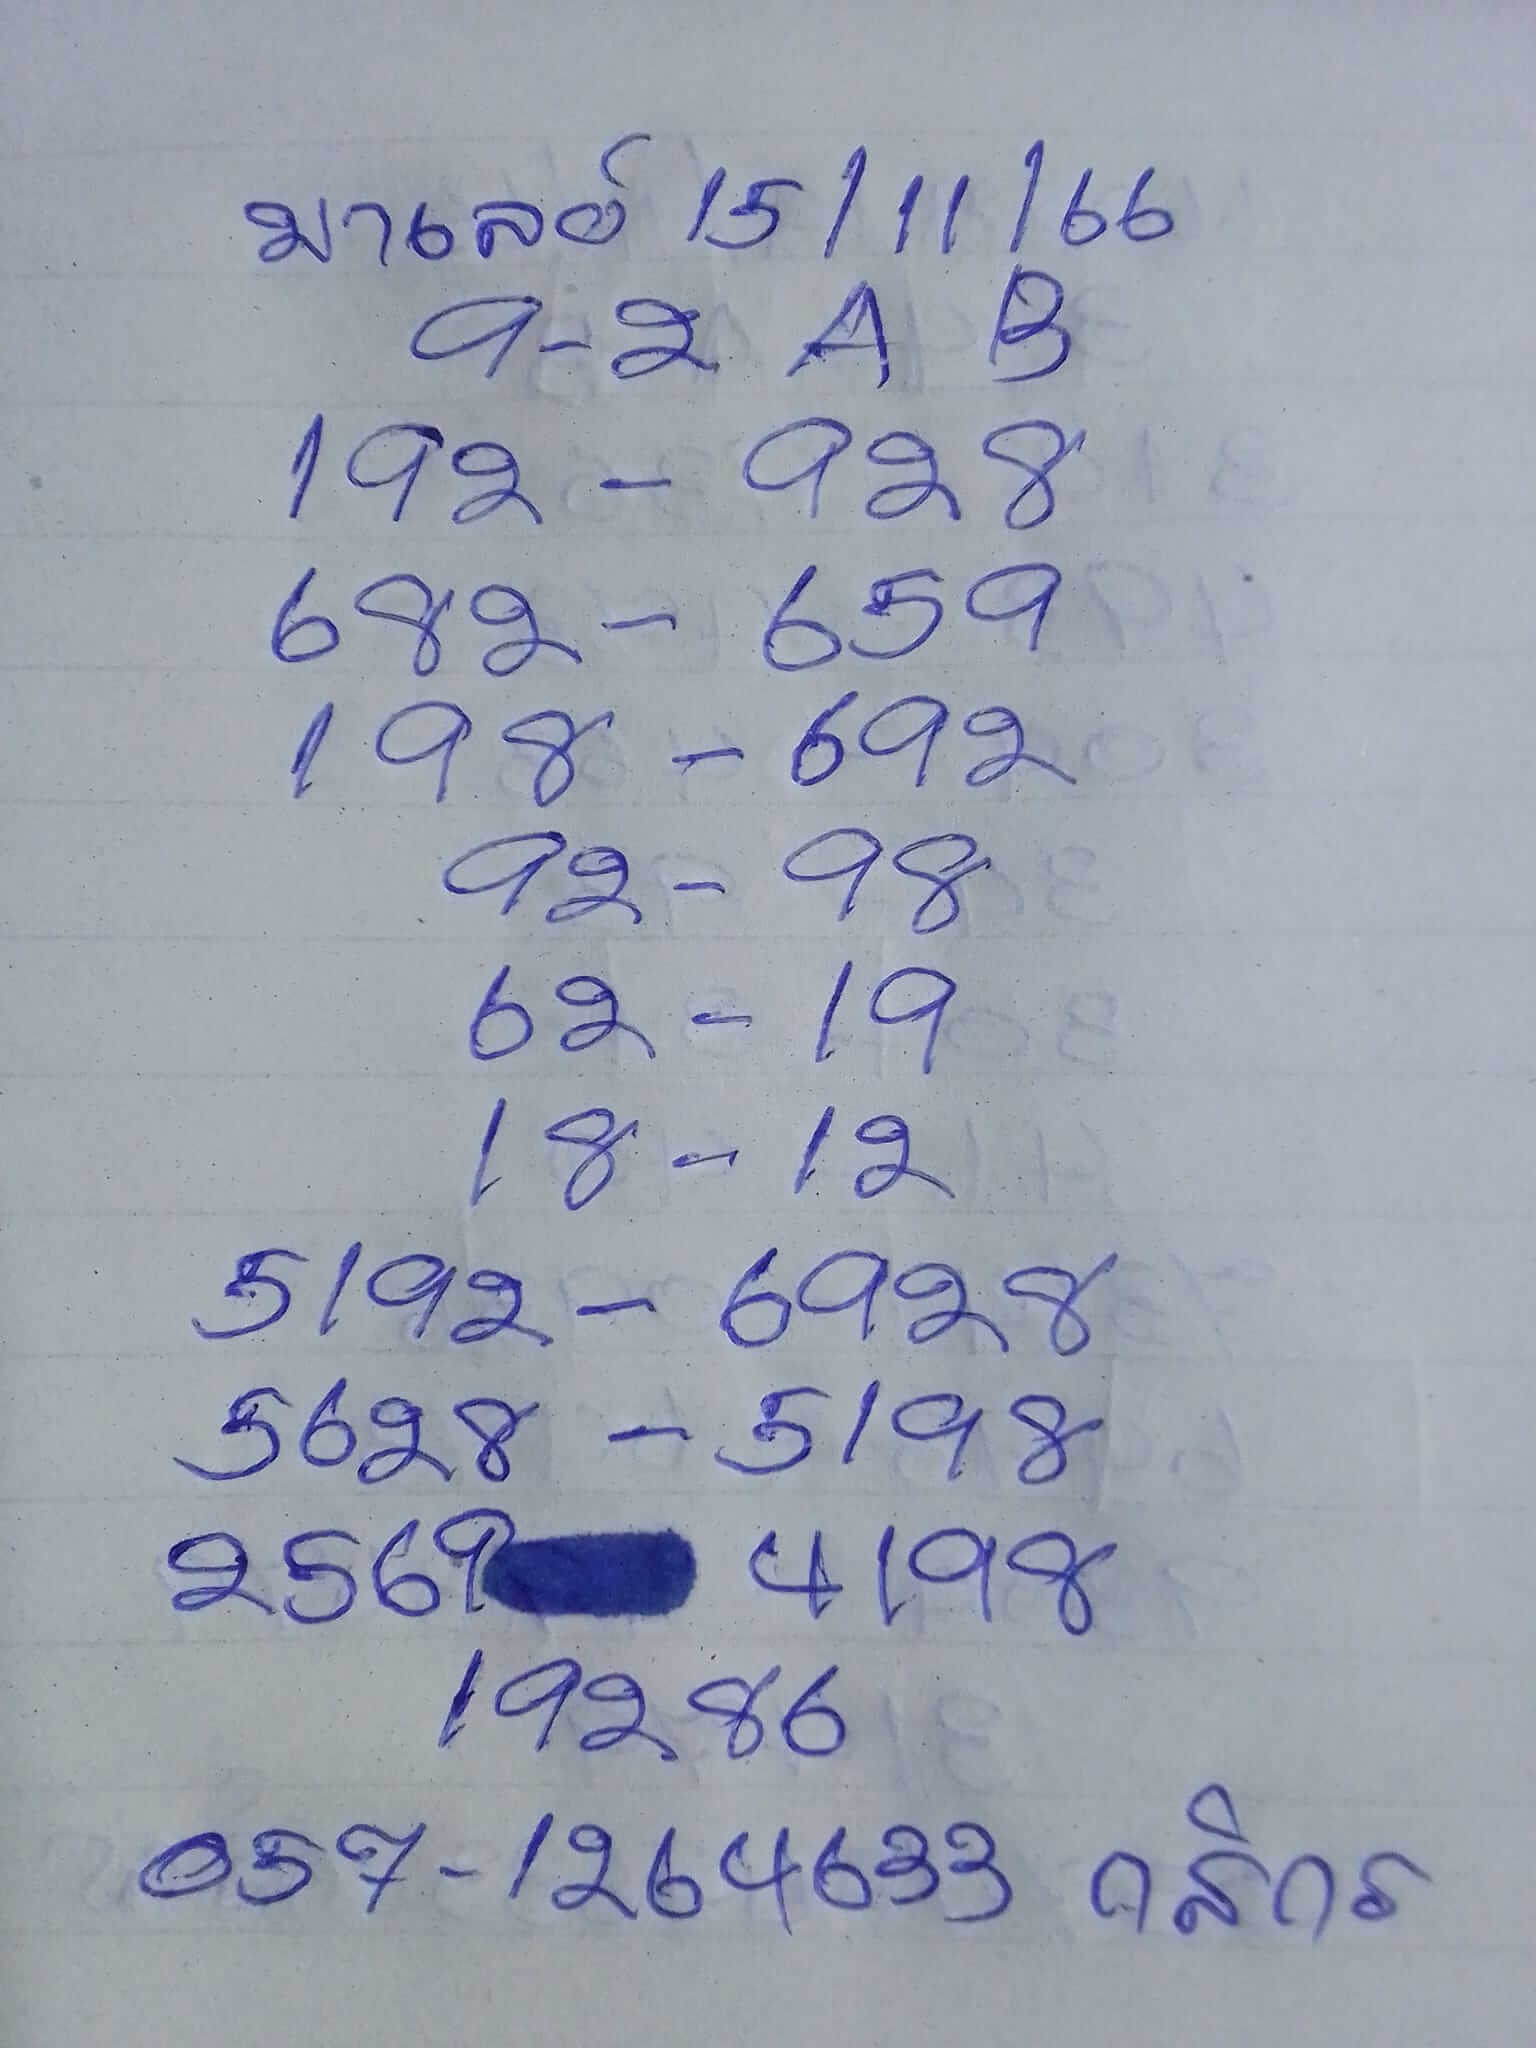 มาเลย์ 15/11/66
9-2 A B
192 - 928
682 - 659
198 - 692
92 - 98
62 - 19
18 - 12
5192 - 6928
5628 - 5198
2569 4198
19286
057-1264633 กสิกร